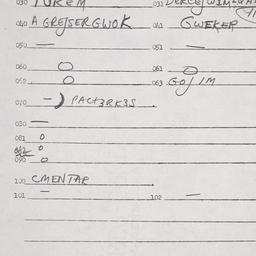 030 TUREM 031
040 A GREJSERGWOK 041 GWEKER
050 — 051 —
060 O 061 O
059 O 063 GOJIM
070 -) PACT3RK3S
030 —
081 O
O
090 O
100 CMENTAR
101 — 102 —